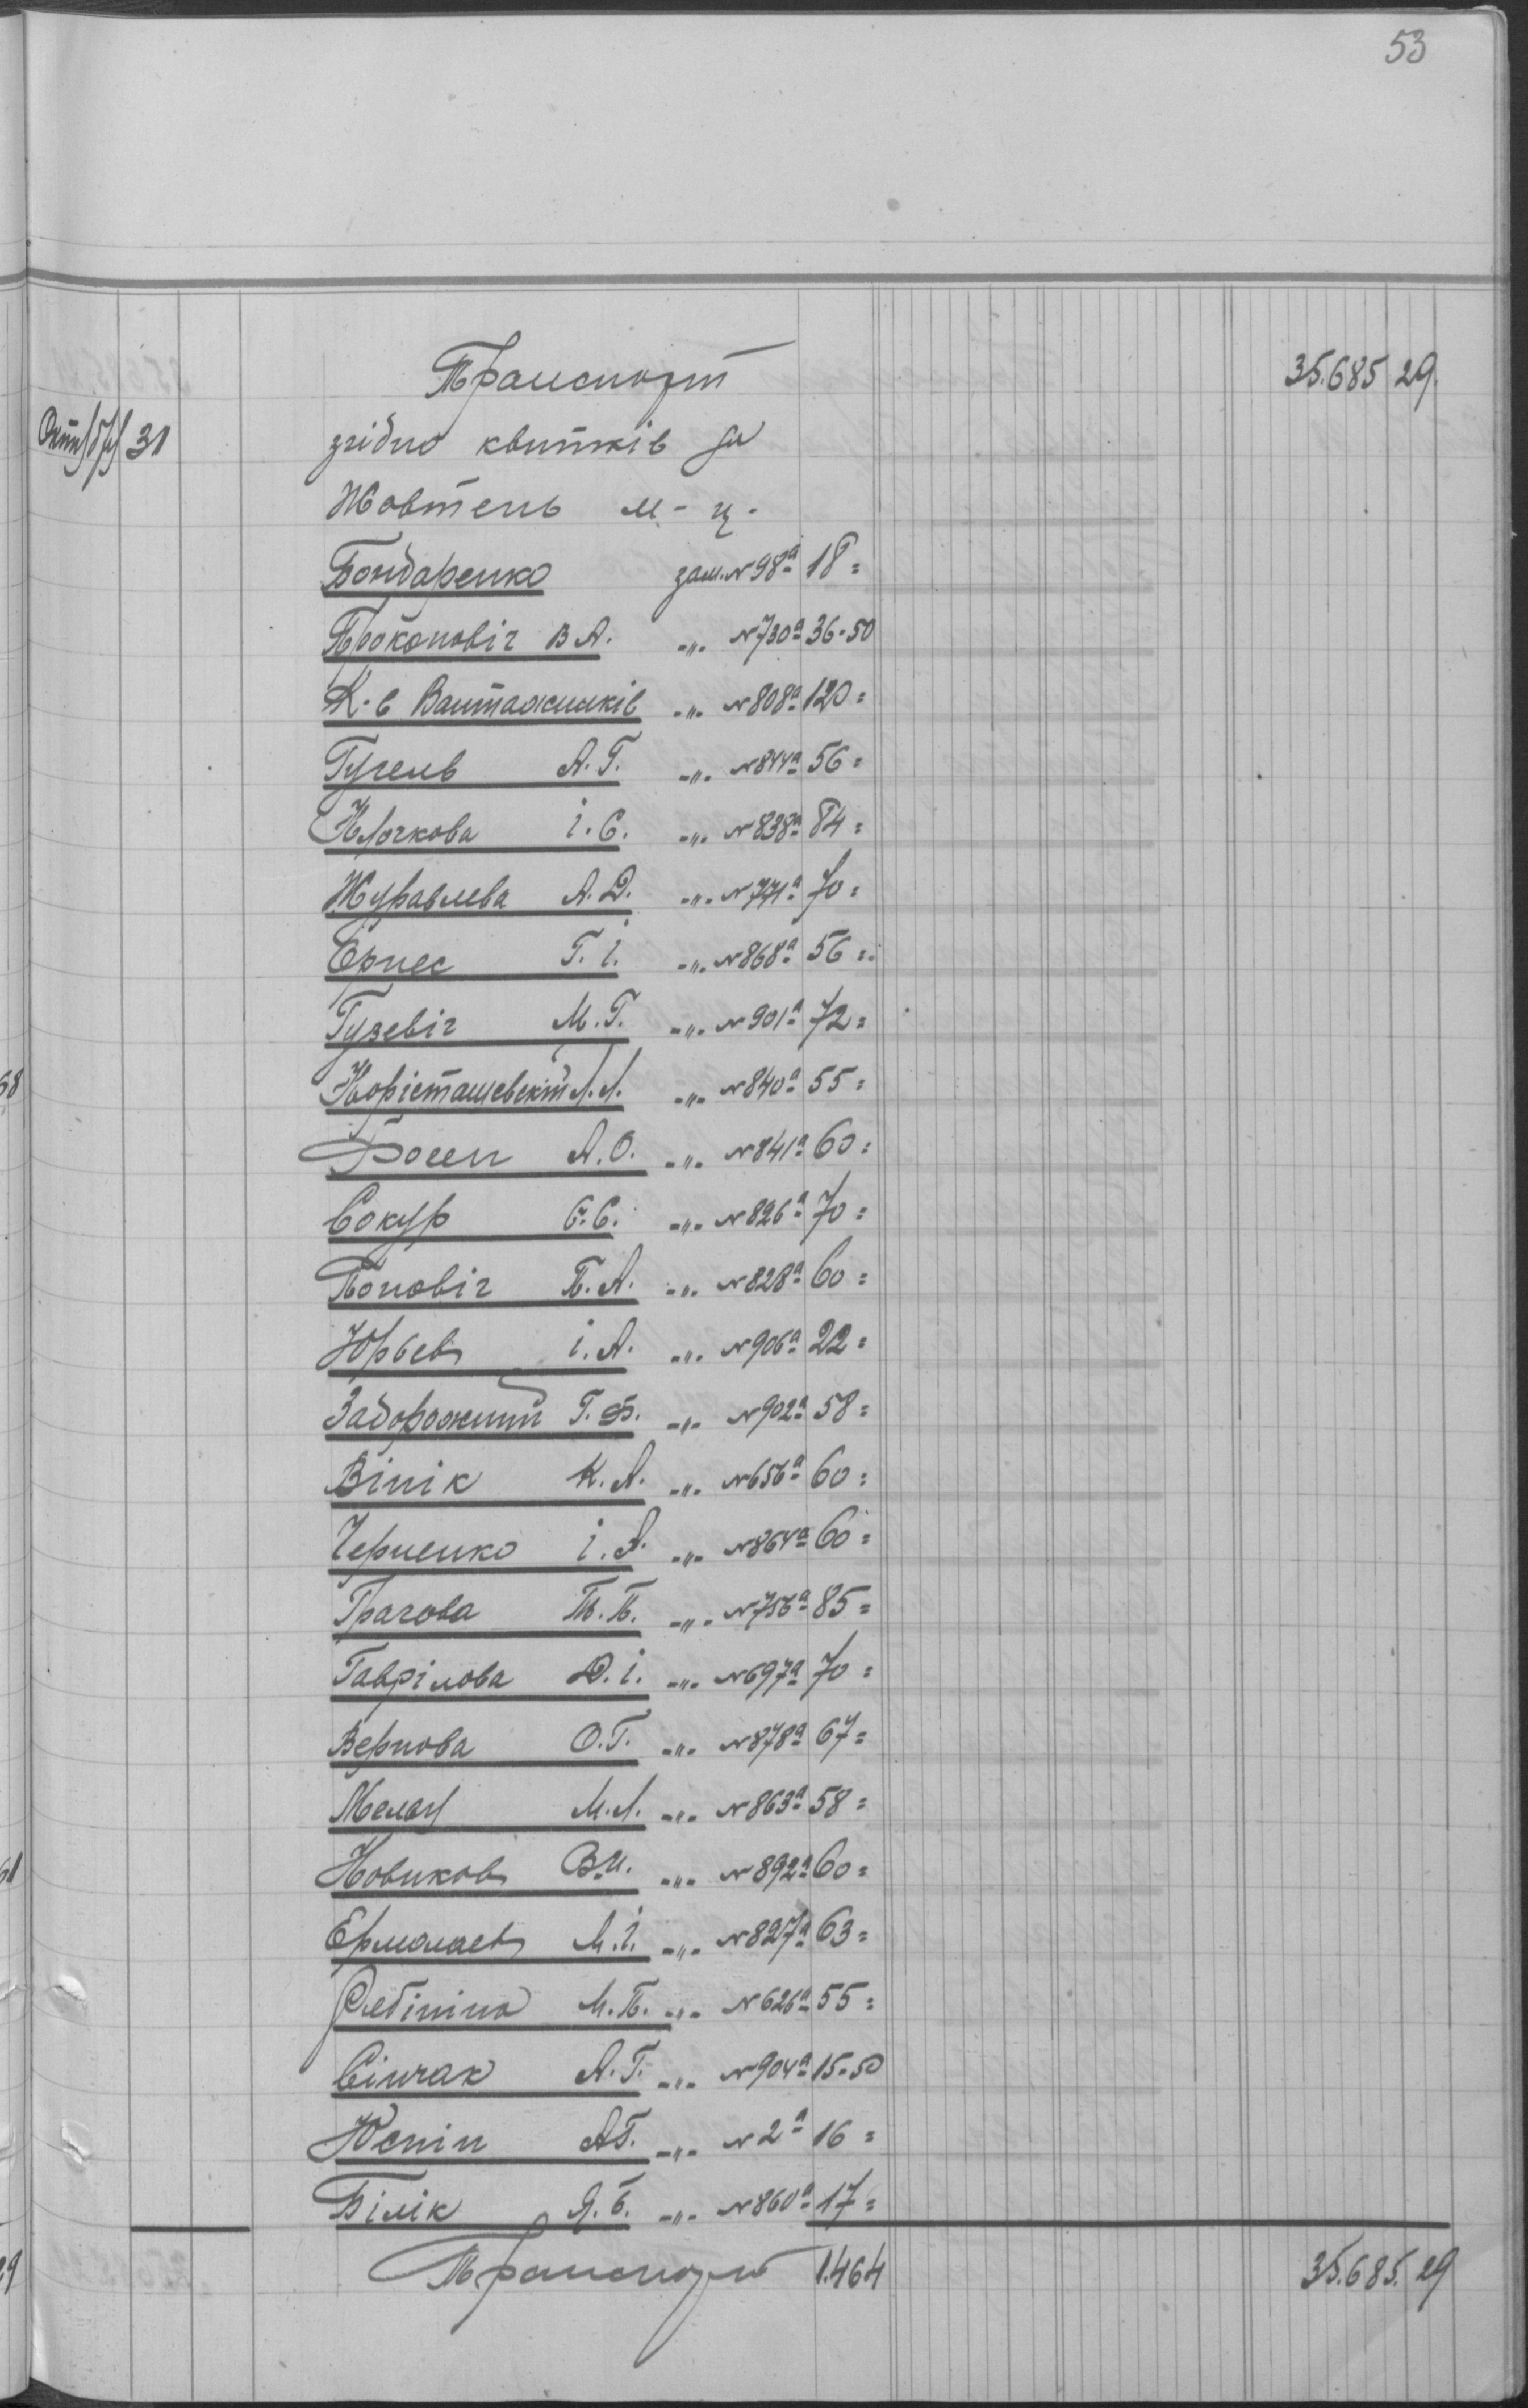 53
Транспорт 35.685 29.
Октябрь 31 згідно квитків за
Жовтень м-ц.
Бондаренко зам. № 98а 18=
Прокоповіч В А. -"- № 730а 36-50
К-в Вантажників -"- № 808а 120=
Гугель А. Г. -"- № 844а 56=
Клочкова І. С. -"- № 838а 84=
Журавлева А. Д. -"- № 771а 70=
Ернес Г. І. -"- № 868а 56=
Гузевіч М. Г. -"- № 901а 72=
Корісташевский Л. Л. -"- № 840а 55=
А. О. -"- № 841а 60=
Сокур Є. С. -"- № 826а 70=
Поповіч П. А. -"- № 828а 60=
Юрьев І. А. -"- № 906а 22=
Задорожний Г. Ф. -"- № 902а 58=
Вінік К. А. -"- № 656а 60=
Черненко І. А. -"- № 864а 60=
Грачова Т. П. -"- № 756а 85=
Гаврілова Д. І. -"- № 697а 70=
Вернова О. Г. -"- № 878а 67=
М. Л. -"- № 863а 58=
Новиков В. И. -"- № 892а 60=
Ермолаев М. І. -"- № 827а 63=
М. П. -"- № 626а 55=
Сінчак А. Г. -"- № 904а 15-50
Юспін А Г. -"- № 2а 16=
Білік Я. Б. -"- № 860а 17=
Транспорт 1.464 35.685. 29